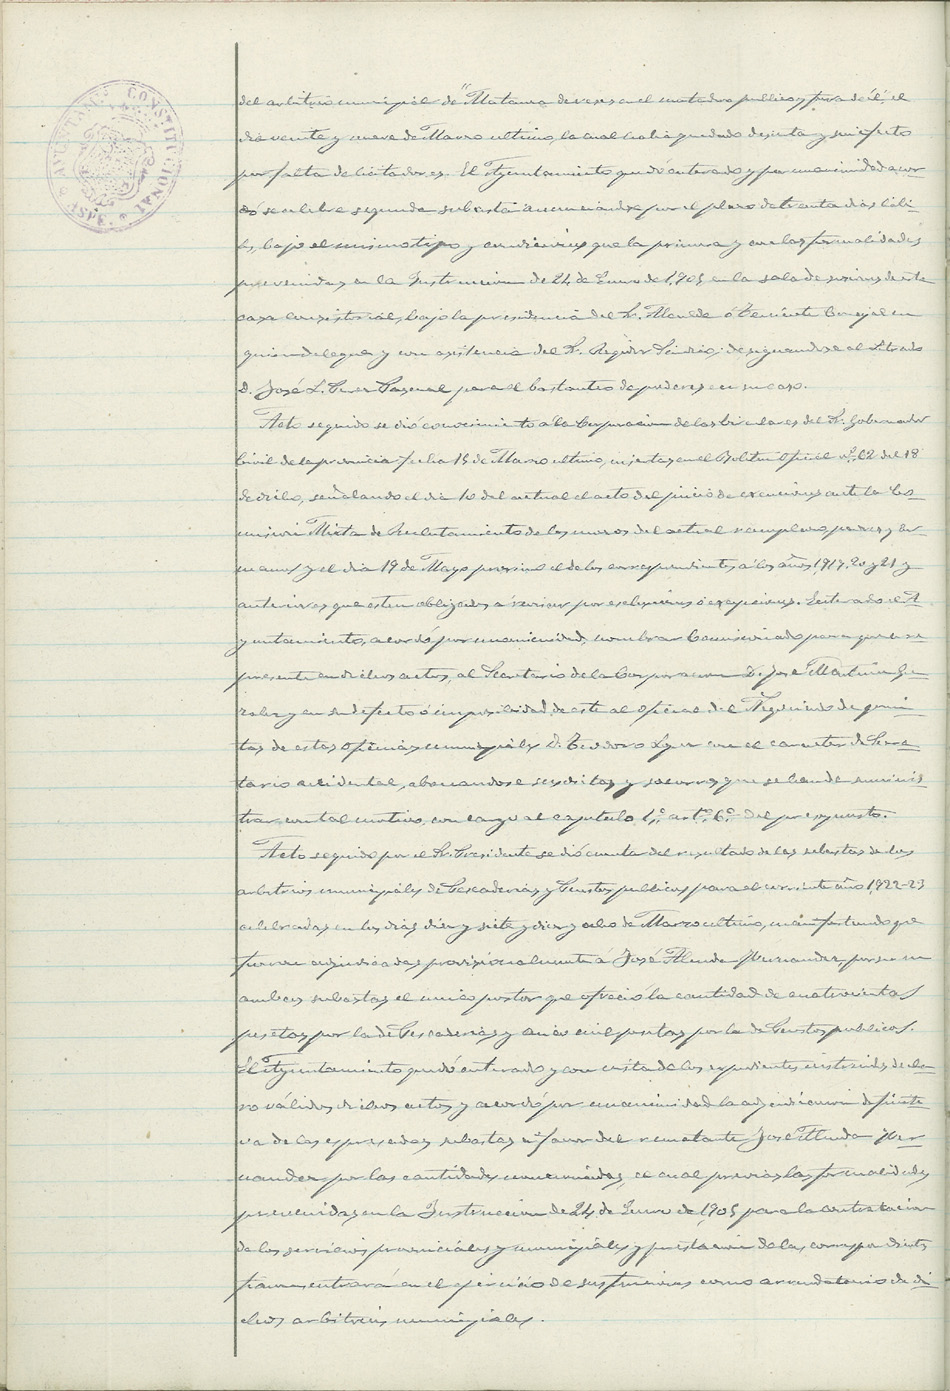 AYUNTAMº CONSTITUCIONAL * ASPE *
del arbitrio municipal de "Matanza de reses en el matadero publico y fuera de él", el
dia veinte y nueve de Marzo ultimo, la cual habia quedado desierta y sin efecto
por falta de licitadores. El Ayuntamiento quedó enterado y por unanimidad acor
dó se celebre segunda subasta anunciandose por el plazo de treinta dias hábi-
les, bajo el mismo tipo y condiciones que la primera y con las formalidades
prevenidas en la Instruccion de 24 de Enero de 1,905 en la sala de sesiones de esta
casa Consistorial, bajo la presidencia del Sr. Alcalde ó Teniente Concejal en
quien delegue y con asistencia del Sr. Regidor Sindico; designandose al Letrado
D. José L. Perez Pascual para el bastanteo de poderes en su caso.
Acto seguido se dió conocimiento á la Corporacion de las Circulares del Sr. Gobernador
Civil de la provincia fecha 15 de Marzo ultimo, insertas en el Boletin Oficial nº. 62 del 18
de dicho, señalando el dia 10 del actual el acto del juicio de exenciones ante la Co-
mision Mixta de Reclutamiento de los mozos del actual reemplazo, padres y her-
manos y el dia 19 de Mayo proximo el de los correspondientes a los años 1,919, 20 y 21 y
anteriores que esten obligados á revision por exclusiones ó excepciones. Enterado el A-
yuntamiento, acordó por unanimidad, nombrar Comisionado para que re-
presente en dichos actos, al Secretario de la Corporacion D. José Martinez Gon-
zalez y en su defecto ó imposibilidad de este al oficial del Negociado de quin-
tas de estas oficinas municipales D. Teodoro Lyer con el caracter de Secre-
tario accidental, abonandose las dietas y socorros que se han de suminis-
trar con tal motivo, con cargo al capitulo 1º. artº. 6º. del presupuesto.
Acto seguido por el Sr. Presidente se dió cuenta del resultado de las subastas de los
arbitrios municipales de Pescaderias y Puestos publicos para el corriente año 1,922-23
celebradas en los dias diez y siete y diez y ocho de Marzo ultimo, manifestando que
fueron adjudicadas provisionalmente á José Almodo Hernandez, por ser en
ambas subastas el unico postor que ofreció la cantidad de cuatrocientas
pesetas por la de Pescaderias y cinco mil pesetas por la de Puestos publicos.
El Ayuntamiento quedó enterado y con vista de los expedientes instruidos decla-
ró válidos dichos actos, y acordó por unanimidad la adjudicacion definiti-
va de las expresadas subastas a favor del rematante José Almodo Her-
nandez por las cantidades mencionadas, el cual previas las formalidades
prevenidas en la Instruccion de 24 de Enero de 1,905 para la contratacion
de los servicios provinciales y municipales y prestacion de la correspondiente
fianza entrará en el ejercicio de sus funciones como arrendatario de di-
chos arbitrios municipales.